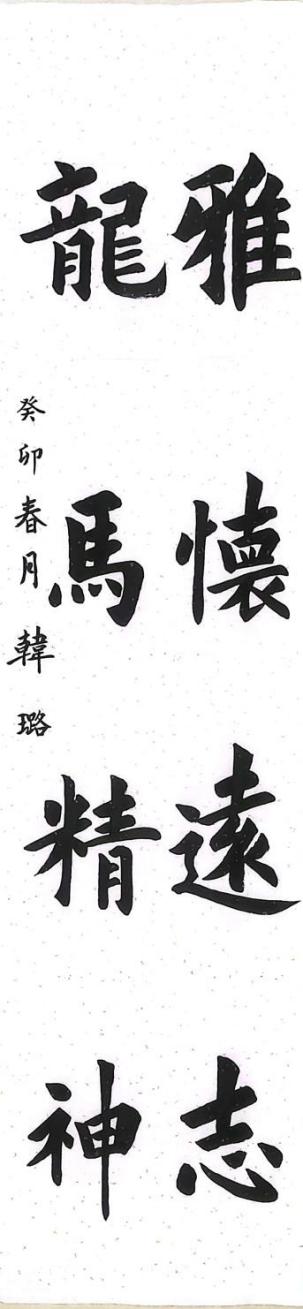 雅懷遠志
龍馬精神
癸卯春月韓璐